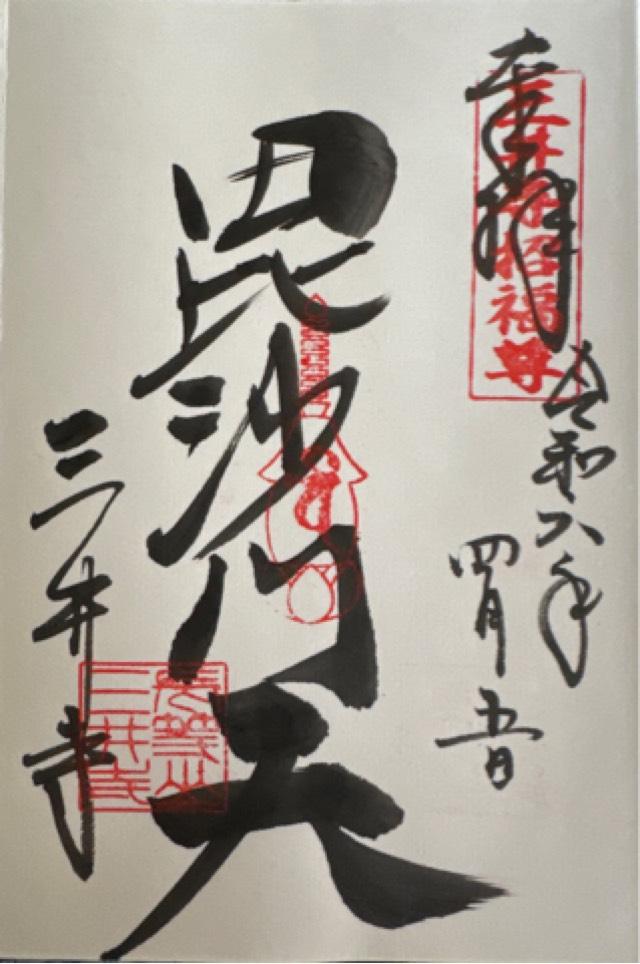 奉拝
三井寺招福尊
令和六年
四月五日
毘沙門天
三井寺
長等山
三井寺